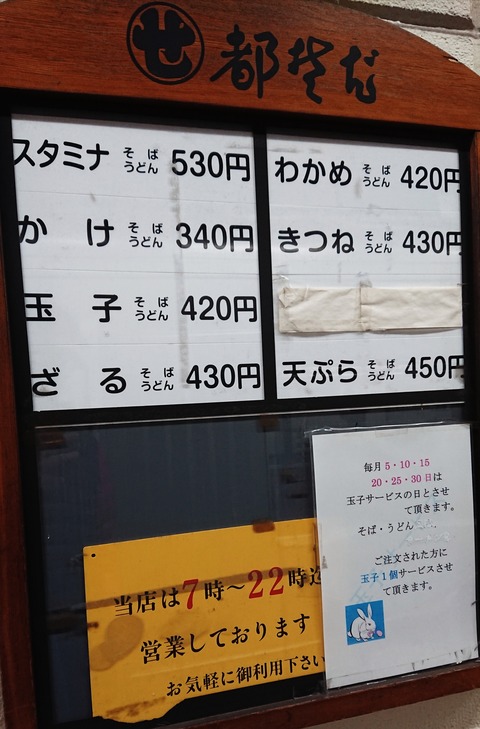 せ 都そば
スタミナ そば うどん 530円
かけ そば うどん 340円
玉子 そば うどん 420円
ざる そば うどん 430円
わかめ そば うどん 420円
きつね そば うどん 430円
天ぷら そば うどん 450円
当店は7時～22時迄
営業しております
お気軽に御利用下さい
毎月5・10・15
20・25・30日は
玉子サービスの日とさせ
て頂きます。
そば・うどん
ご注文された方に
玉子1個サービスさせ
て頂きます。